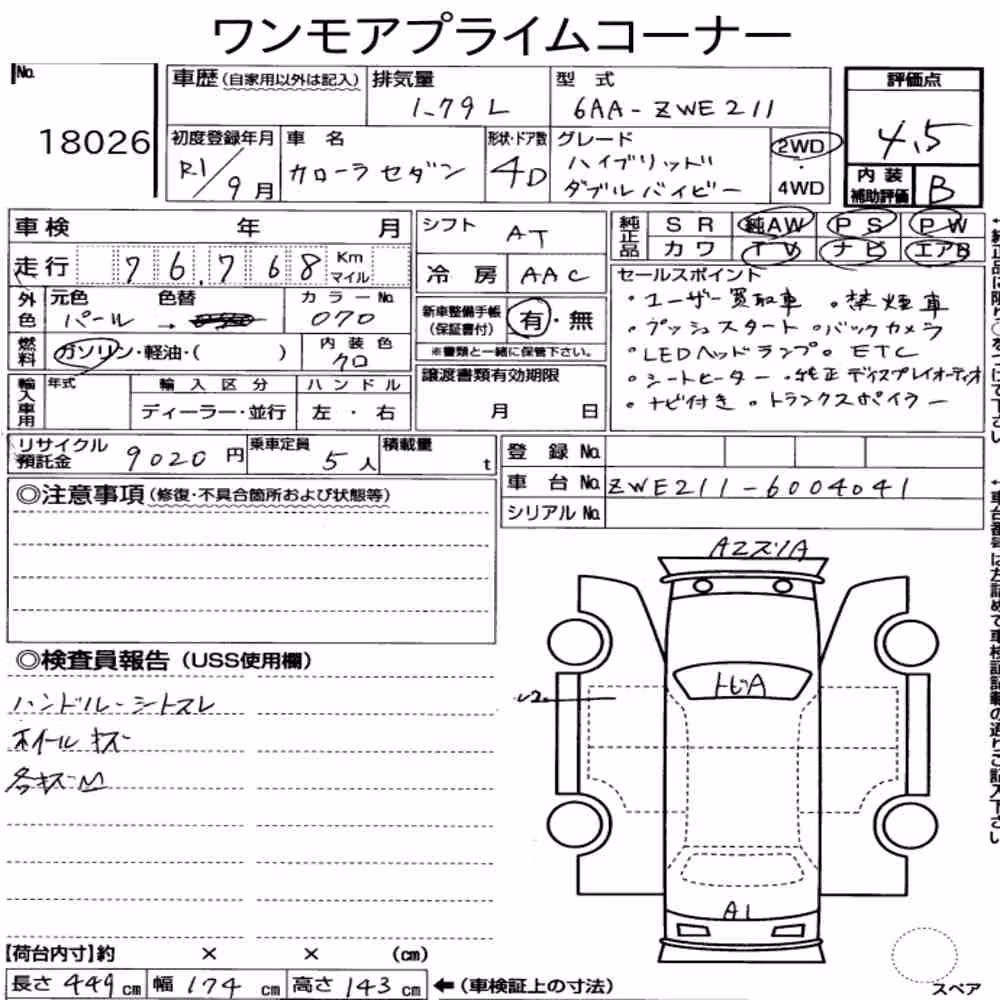 ワンモアプライムコーナー
No.
18026
車歴(自家用以外は記入)
排気量
1.79 L
型式
6AA-ZWE211
評価点
4.5
初度登録年月
R1/9月
車名
カローラセダン
形状・ドア数
4D
グレード
ハイブリッド
ダブルバイビー
2WD
・
4WD
内装
補助評価
B
車検 年 月
走行 76,768 Km マイル
シフト
AT
冷房
AAC
純正品
SR 純AW PS PW
カワ TV ナビ エアB
セールスポイント
・ユーザー買取車 ・禁煙車
・プッシュスタート ・バックカメラ
・LEDヘッドランプ ・ETC
・シートヒーター ・純正ディスプレイオーディオ
・ナビ付き ・トランクスポイラー
外色
元色 色替
パール →
カラーNo.
070
新車整備手帳
(保証書付)
有・無
※書類と一緒に保管下さい。
燃料
ガソリン・軽油・( )
内装色
クロ
輸入車用
年式
輸入区分
ディーラー・並行
ハンドル
左・右
譲渡書類有効期限
月 日
リサイクル預託金
9020円
乗車定員
5人
積載量
t
登録No.
車台No.
ZWE211-6004041
シリアルNo.
◎注意事項(修復・不具合箇所および状態等)
◎検査員報告(USS使用欄)
ハンドル・シートスレ
ホイールキズ
各キズ凹
A2スリA
トビA
A1
【荷台内寸】約 × × (cm)
長さ 449 cm
幅 174 cm
高さ 143 cm
←(車検証上の寸法)
スペア
↑純正品に限り○をつけて下さい
↑車台番号は左詰めで車検証記載の通りご記入下さい